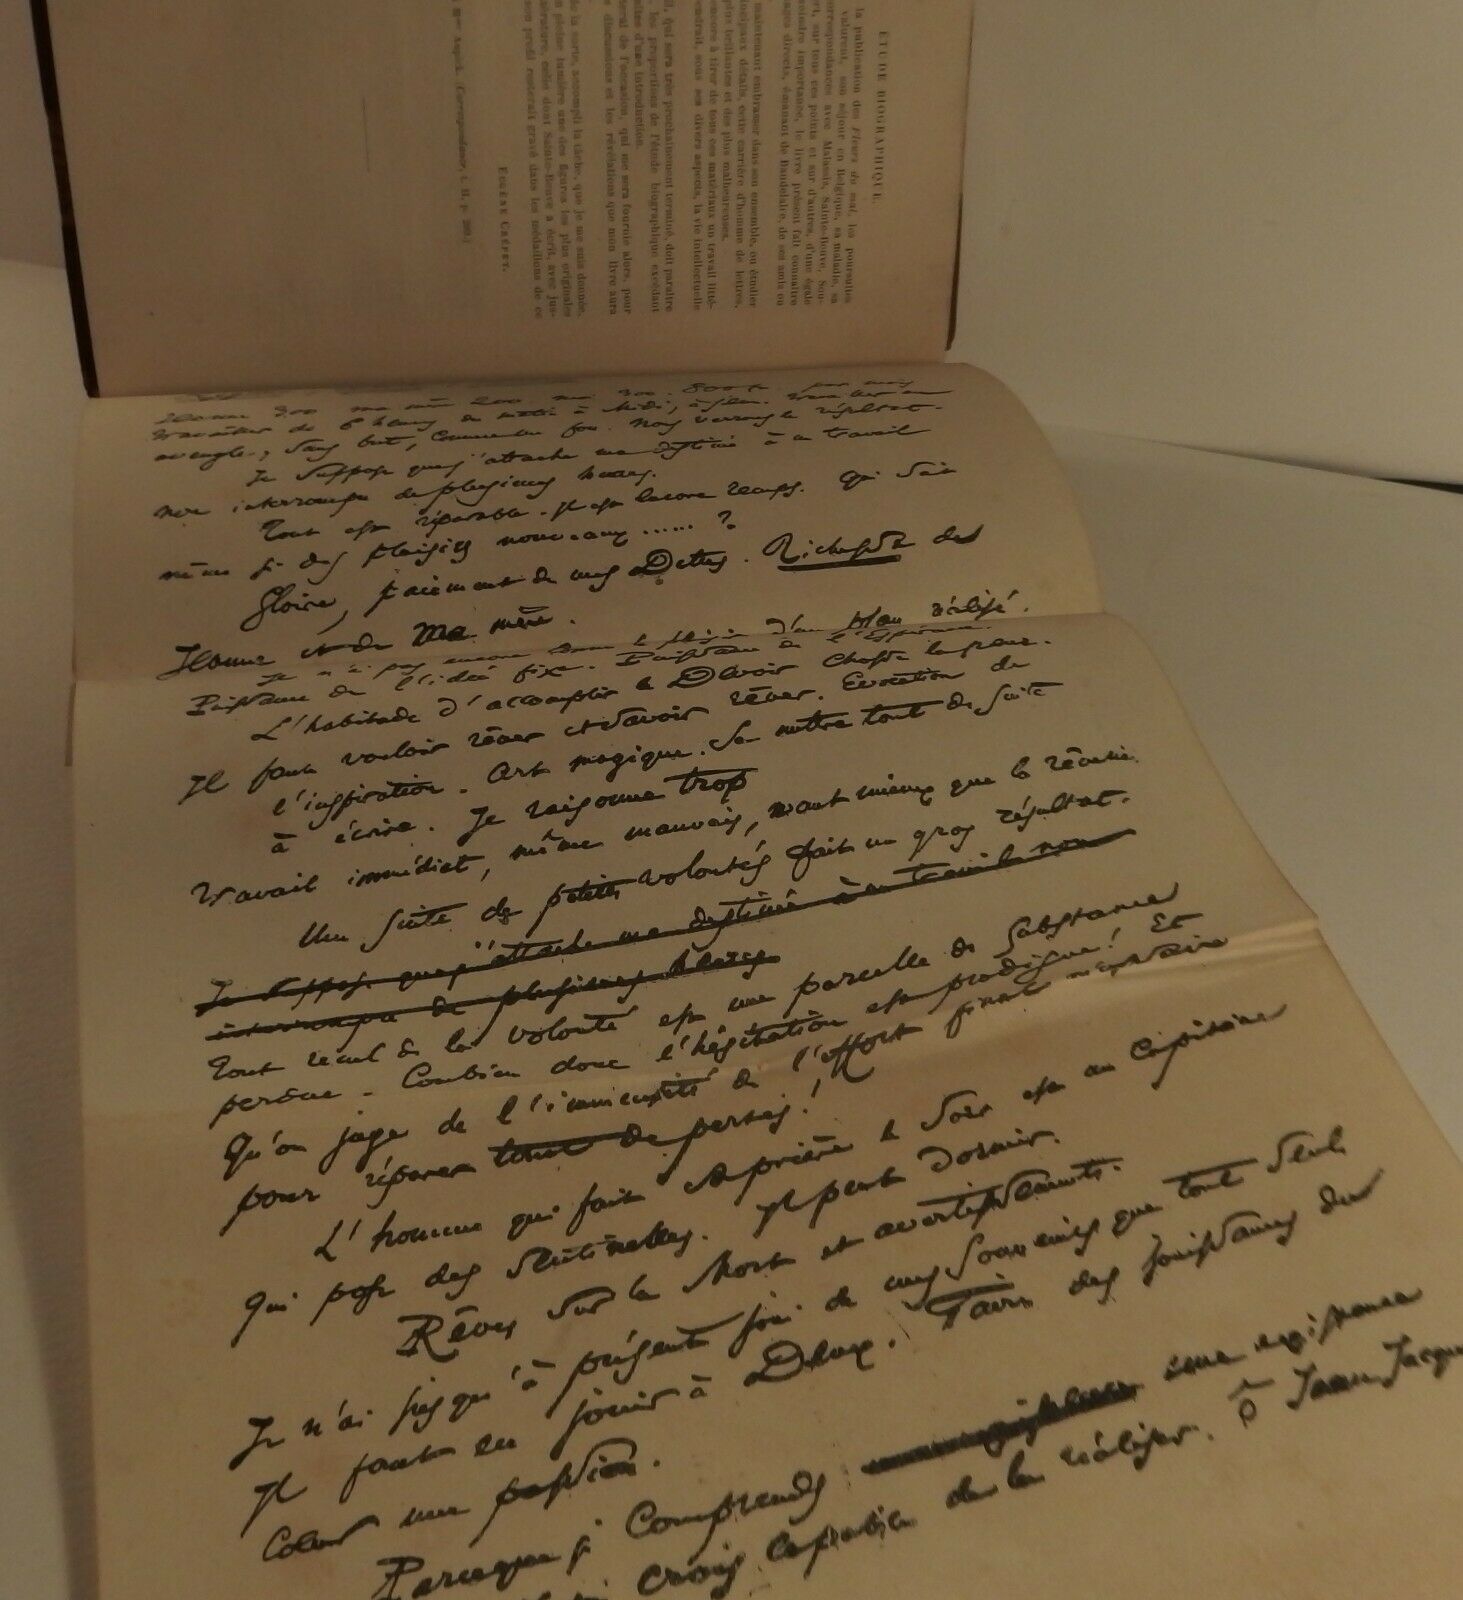 ÉTUDE BIOGRAPHIQUE.
la publication des Fleurs du mal, les poursuites
valurent, son séjour en Belgique, sa maladie, sa
correspondances avec Malassis, Sainte-Beuve, Sou-
sur tous ces points et sur d'autres, d'une égale
moindre importance, le livre présent fait connaître
directs, émanant de Baudelaire, de ses amis ou
maintenant embrasser dans son ensemble, ou étudier
principaux détails, cette carrière d'homme de lettres,
plus brillantes et des plus malheureuses.
encore à tirer de tous ces matériaux un travail litté-
sous ses divers aspects, la vie intellectuelle
qui sera très prochainement terminé, doit paraître
les proportions de l'étude biographique excédant
d'une introduction.
de l'occasion, qui me sera fournie alors, pour
discussions et les révélations que mon livre aura
de la sorte, accompli la tâche, que je me suis donnée,
pleine lumière une des figures les plus originales
celle dont Sainte-Beuve a écrit, avec jus-
son profil resterait gravé dans les médaillons de ce
EUGÈNE CRÉPET.
Mme Aupick. (Correspondance, t. II, p.
Jeanne 300 ma mère 200 moi 300. 800 f. par mois
Travailler de 6 heures du matin à Midi, à jeun. Travailler en
aveugle, sans but, comme un fou. Nous verrons le résultat.
Je suppose que j'attache ma destinée à un travail
non interrompu de plusieurs heures.
Tout est réparable. Il est encore temps. Qui sait
même si des plaisirs nouveaux ...... ?
Gloire, paiement de mes Dettes. Richesse de
Jeanne et de Ma mère.
Je n'ai pas encore connu le plaisir d'un plan réalisé.
Puissance de l'idée fixe. Puissance de l'Espérance.
L'habitude d'accomplir le Devoir chasse la peur.
Il faut vouloir rêver et savoir rêver. Evocation de
l'inspiration. Art magique. Se mettre tout de suite
à écrire. Je raisonne trop
Travail immédiat, même mauvais, vaut mieux que la rêverie.
Une suite de petites volontés fait un gros résultat.
Je suppose que j'attache ma destinée à un travail non
interrompu de plusieurs heures
Tout recul de la volonté est une parcelle de substance
perdue. Combien donc l'hésitation est prodigue! Et
Qu'on juge de l'immensité de l'effort final nécessaire
pour réparer tant de pertes!
L'homme qui fait sa prière le soir est un capitaine
qui pose des sentinelles. Il peut dormir.
Rêves sur la Mort et avertissements.
Je n'ai jusqu'à présent joui de mes souvenirs que tout seul.
Il faut en jouir à Deux. Faire des jouissances du
Coeur une passion.
Parceque je comprends une existence
crois capable de la réaliser. ô Jean Jacques